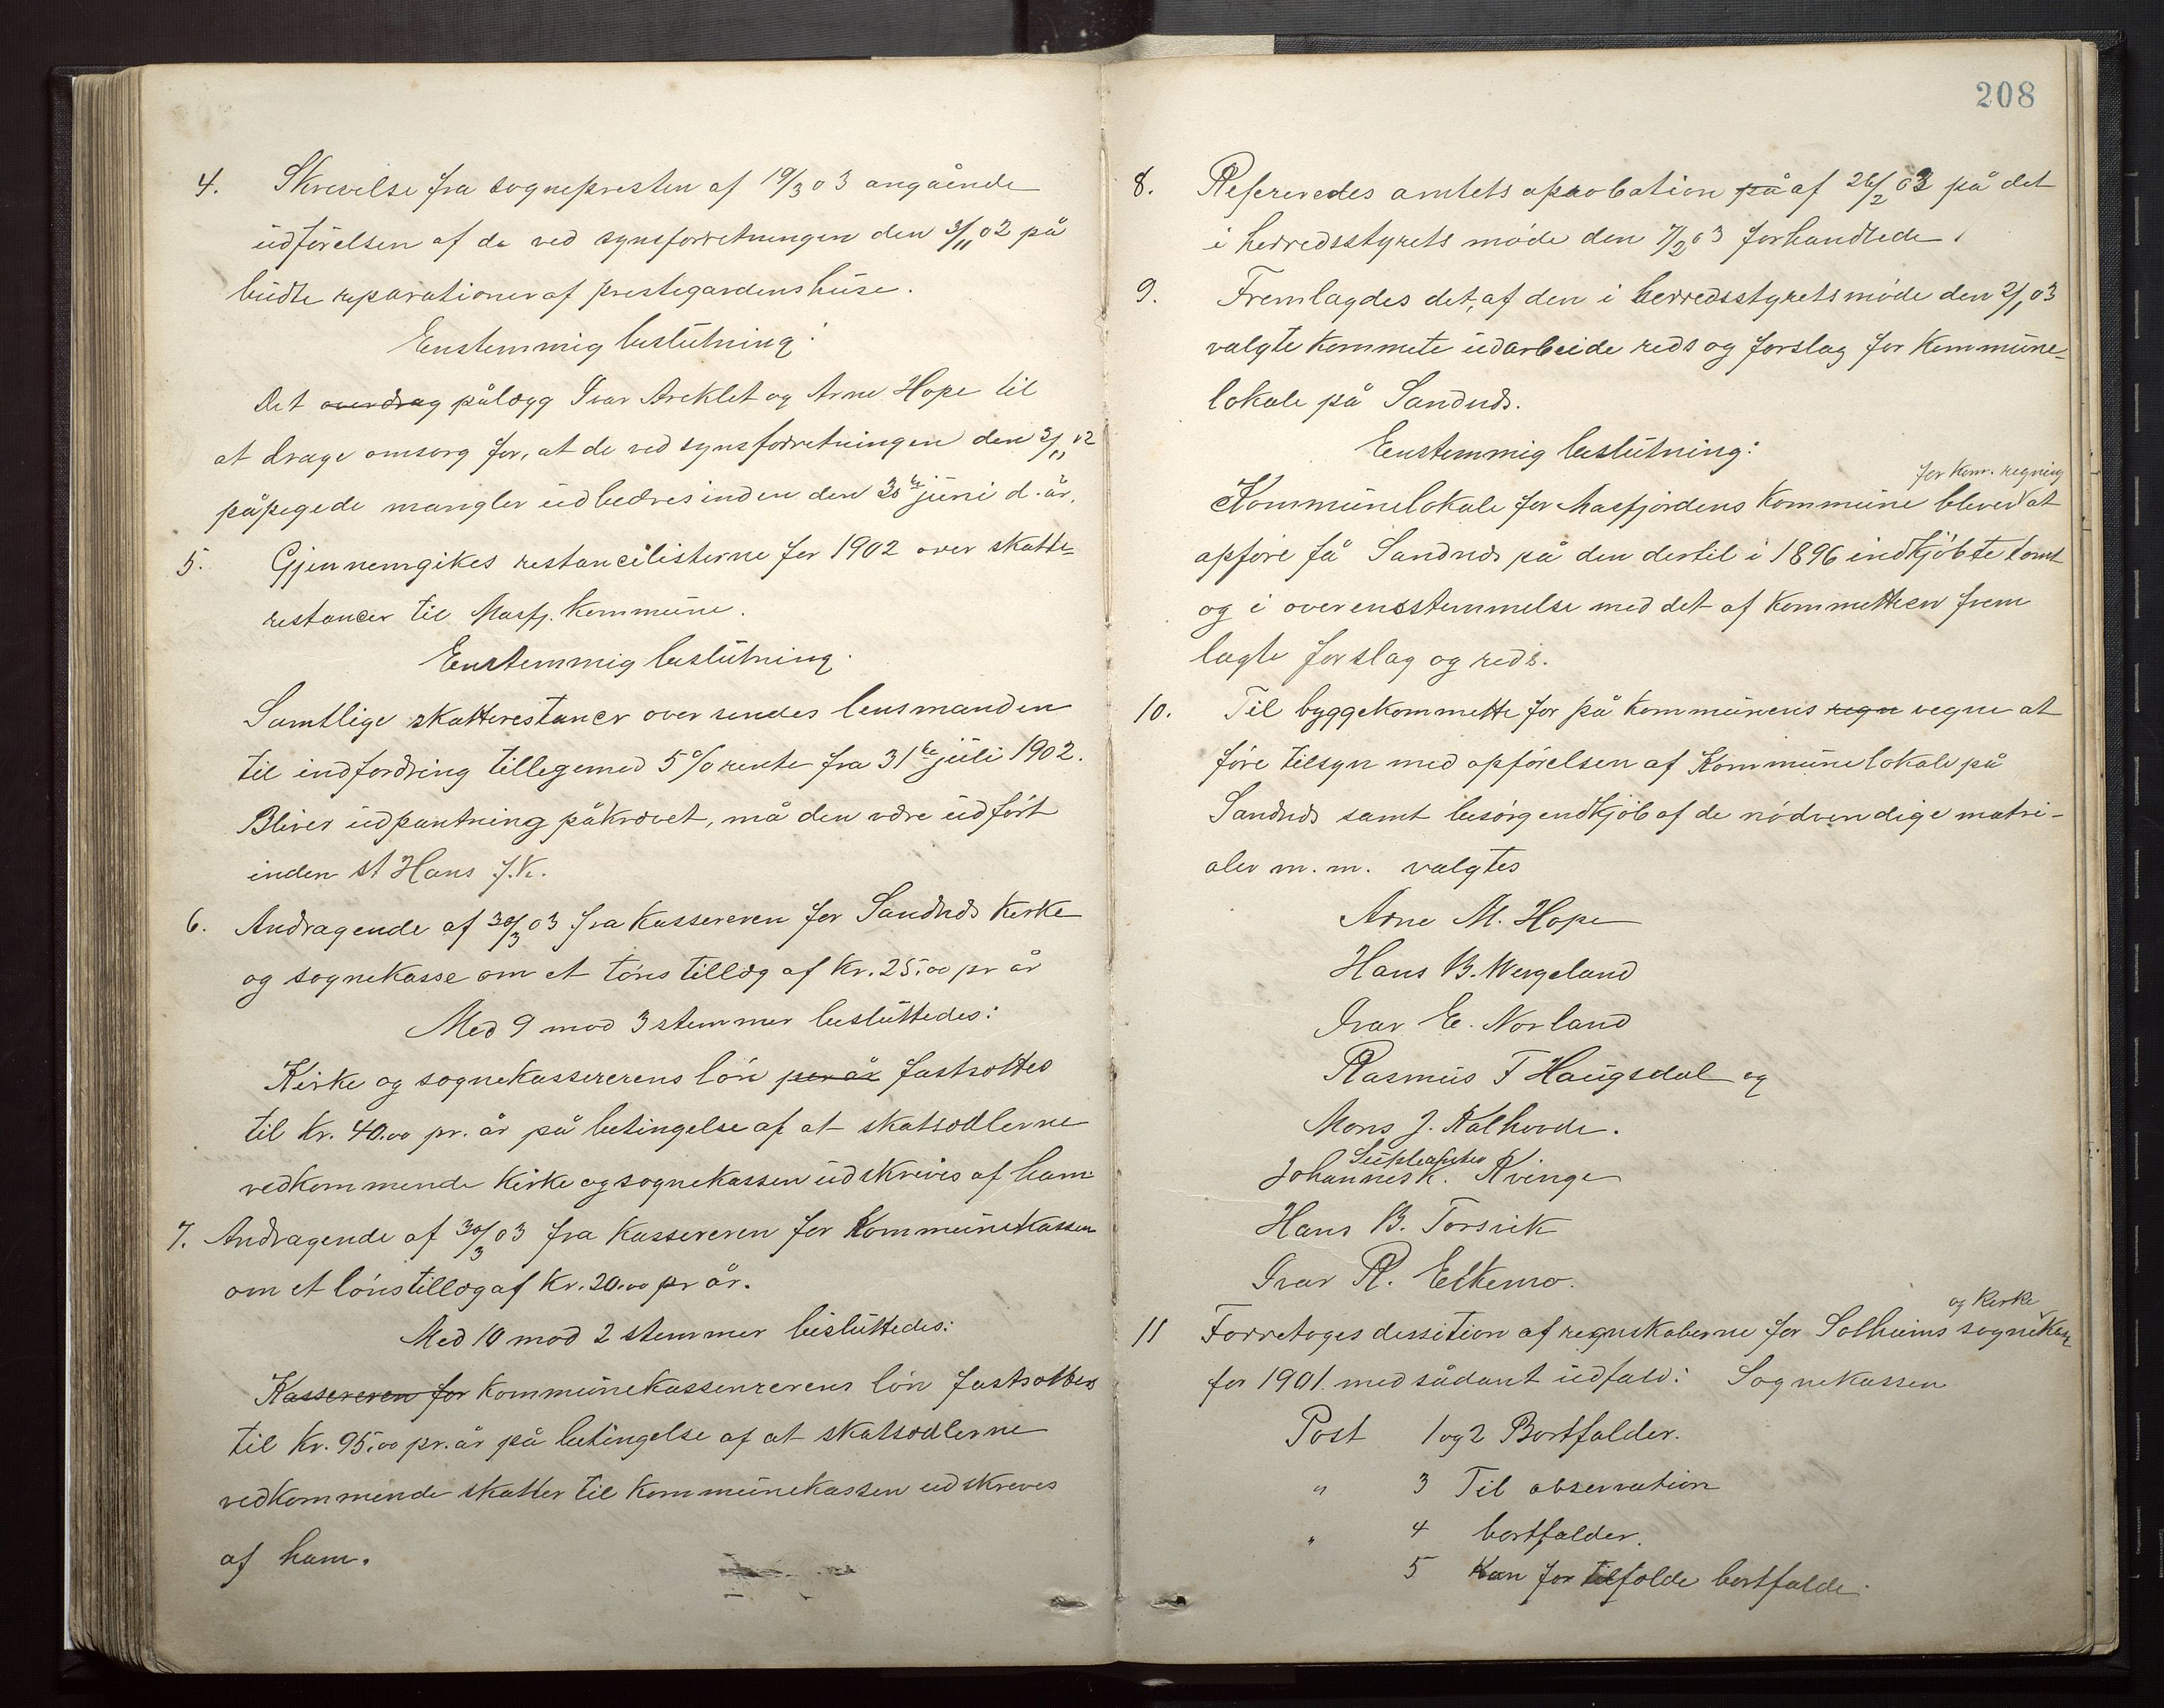 4. Skrevelse fra sognepresten af 19/3 03 angående
udførelsen af de ved synsforretningen den 3/11 02 på
budte reparationer af prestegardens huse.
Enstemmig beslutning:
Det overdrog pålægg Ivar Areklet og Arne Hope til
at drage omsorg for, at de ved synsforretningen den 3/11 02
påpegede mangler udbedres inden den 30te juni d. år.
5. Gjennemgikes restancelisterne for 1902 over skatte-
restancer til Masfj. Kommune.
Enstemmig beslutning.
Samtlige skatterestancer oversendes lensmanden
til indfordring tillegemed 5 % rente fra 31te juli 1902.
Bliver udpantning påkrævet, må den være udført
inden st Hans f.k.
6. Andragende af 30/3 03 fra Kassereren for Sandnæs kirke
og sognekasse om et lønstillæg af Kr. 25.00 pr år
Med 9 mod 3 stemmer besluttedes:
Kirke og sognekassererens løn per år fastsættes
til Kr. 40.00 pr. år på betingelse af at skatsedlerne
vedkommende kirke og sognekassen udskrives af ham.
7. Andragende af 30/3 03 fra Kassereren for Kommunekassen
om et lønstillæg af Kr. 20.00 pr år.
Med 10 mod 2 stemmer besluttedes:
Kassereren for Kommunekassenrerens løn fastsættes
til Kr. 95.00 pr. år på betingelse af at skatsedlerne
vedkommende skatter til Kommunekassen udskreves
af ham.
208
8. Refereredes amtets aprobation på af 26/2 03 på det
i herredsstyrets møde den 7/2 03 forhandlede.
9. Fremlagdes det, af den i herredsstyrets møde den 2/1 03
valgte Kommete udarbeide reds og forslag for Kommune-
lokale på Sandnæs.
Enstemmig beslutning:
for Kom. regning
Kommunelokale for Masfjordens Kommune blever at
opføre på Sandnæs på den dertil i 1896 indkjøbte tomt
og i overensstemmelse med det af Kommetteen frem
lagte forslag og reds.
10. Til byggekommette for på Kommunens regn vegne at
føre tilsyn med opførelsen af Kommunelokale på
Sandnæs samt besørge indkjøb af de nødvendige matri-
aler m. m. valgtes
Arne M. Hope
Hans B. Wergeland
Ivar E. Norland
Rasmus T Haugsdal og
Mons J. Kalhovde.
Supleanter
Johannes K. Kvinge
Hans B. Torsvik
Ivar R. Eikemo.
og Kirke
11 Forretoges dessition af regnskaberne for Solheims sognekas
for 1901. med sådant udfald: Sognekassen
Post 1 og 2 Bortfalder.
" 3 Til observation
" 4 bortfalder.
5 Kan for tilfælde bortfalde.